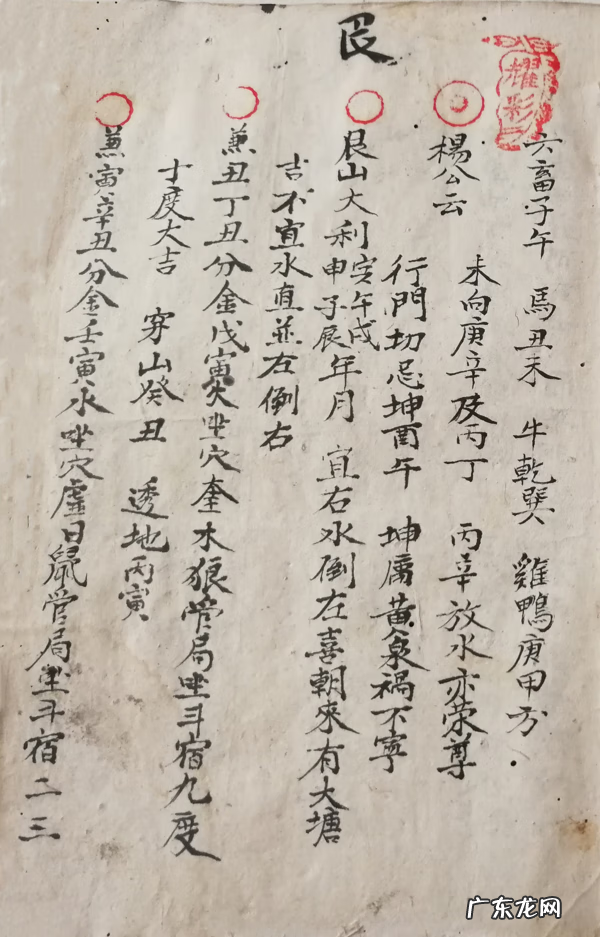 艮
六畜子午 馬丑未 牛乾巽 雞鴨庚甲方
楊公云 未向庚辛及丙丁 丙辛放水亦荣尊
行門切忌坤酉午 坤庚黄泉禍不寧
艮山大利寅午戌申子辰年月 宜右水倒左喜朝來有大塘
吉不宜水直並左倒右
兼丑丁丑分金戊寅火坐穴奎木狼管局坐斗宿九度
十度大吉 穿山癸丑 透地丙寅
兼寅辛丑分金壬寅水坐穴虚日鼠管局坐斗宿二三
耀彩
广东龙网